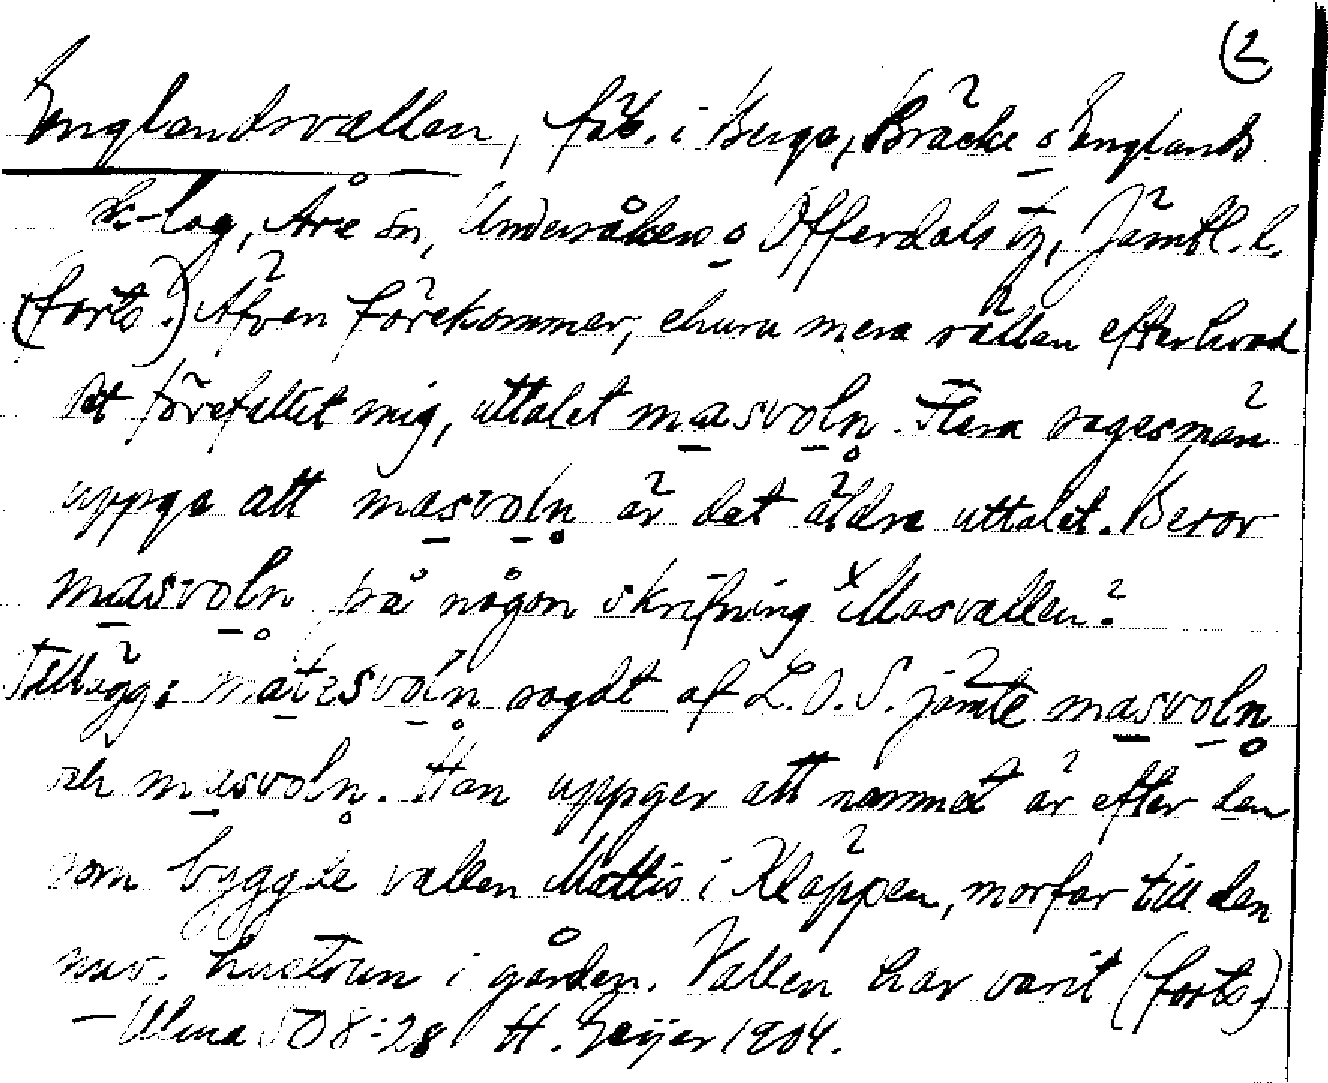 (2
Englandsvallen, fäb. i Berge, Bräcke o Englands
sk-lag, Åre sn, Undersåkers o Offerdals tg, Jämtl. l.
(forts.) Äfven förekommer, ehuru mera sällan efter hvad
det förefallit mig, uttalet masvoln. Flera sagesmän
uppge att masvoln är det äldre uttalet. Beror
masvoln på någon skrifning x Masvallen?
Tillägg: matssvoln sagdt af L.O.S. jämte masvoln
och masvoln. Han uppger att namnet är efter den
som byggde vallen Mattis i Kläppen, morfar till den
nuv. hustrun i gården. Vallen har varit (forts.)
– Ulma 508:28 H. Geijer 1904.